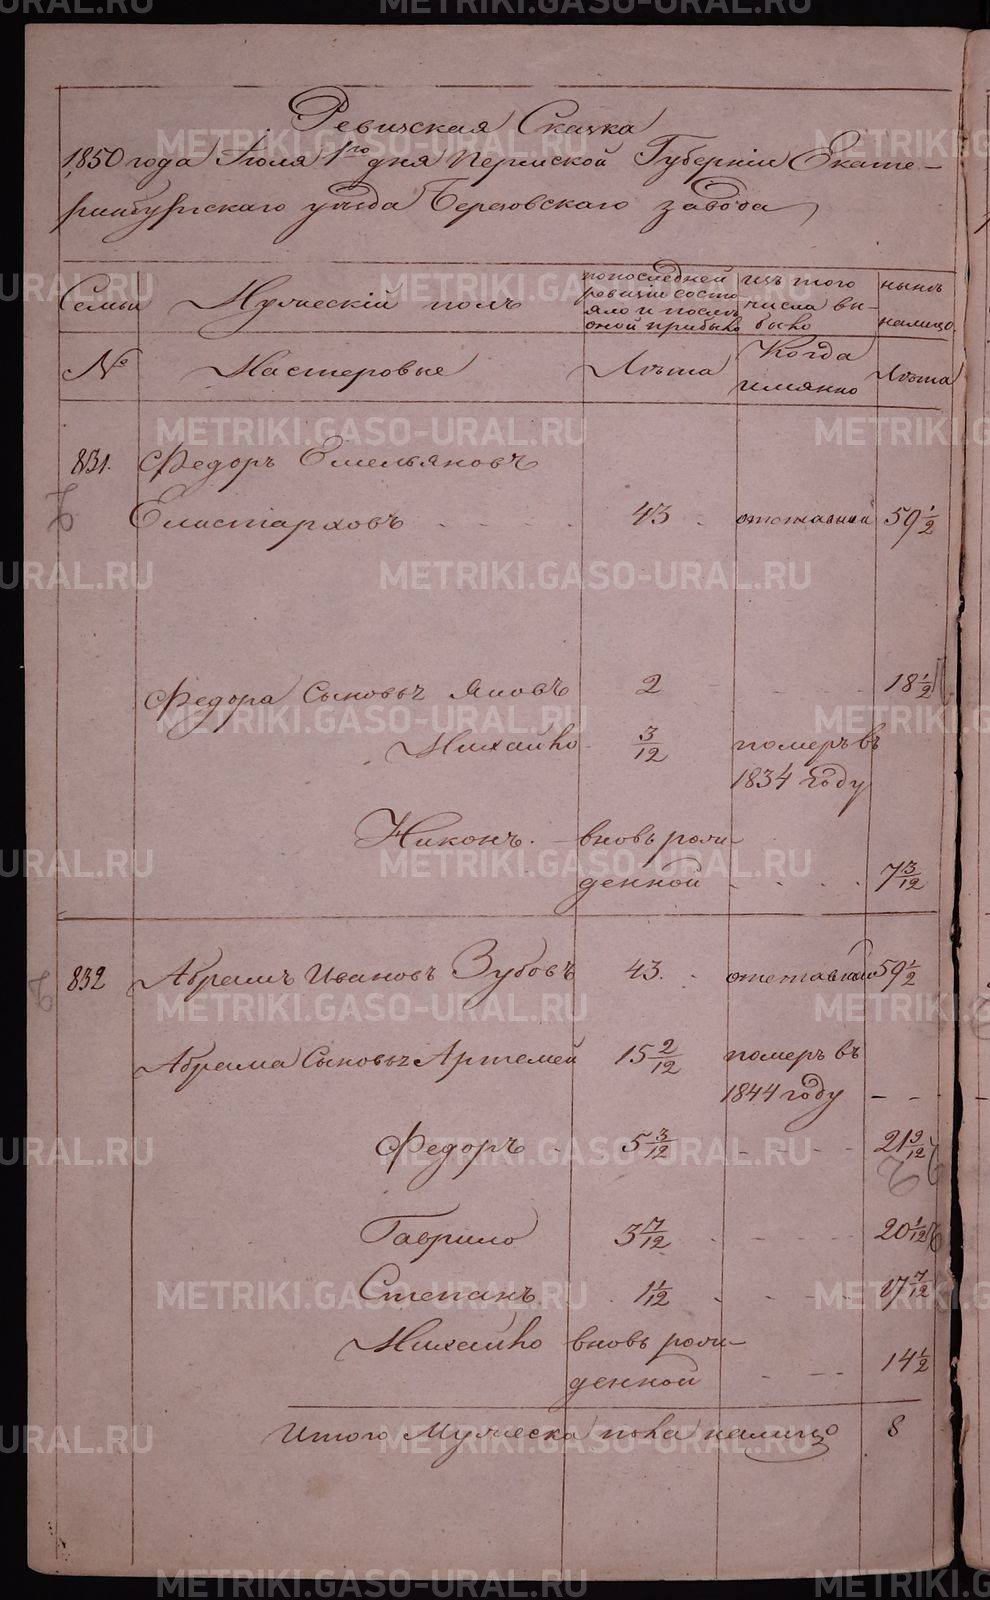 Ревизская Сказка
1850 года Июля 1го дня Пермской Губернии Екате-
ринбургскаго уѣзда Березовскаго завода
Семьи
Мужескій полъ
по последней
ревизіи состо
яло и послѣ
оной прибыло
изъ того
числа вы-
было
нынѣ
налицо.
№
Мастеровые
Лѣта
Когда
имянно
Лѣта
831. Федоръ Емельяновъ
Елистарховъ 43 отставной 59 1/2
Федора Сыновья Яковъ 2 18 1/2
Михайло 3/12 померъ въ
1834 году
Никонъ. вновь рож-
денной 7 3/12
832 Абрамъ Ивановъ Зубовъ 43. отставной 59 1/2
Абрама Сыновья Артемей 15 2/12 померъ въ
1844 году
Федоръ 5 3/12 21 9/12
Гаврило 3 7/12 20 1/12
Степанъ 1 1/12 17 7/12
Михайло вновь рож-
денной 14 1/2
Итого Мужеска пола налицо 8
METRIKI.GASO-URAL.RU